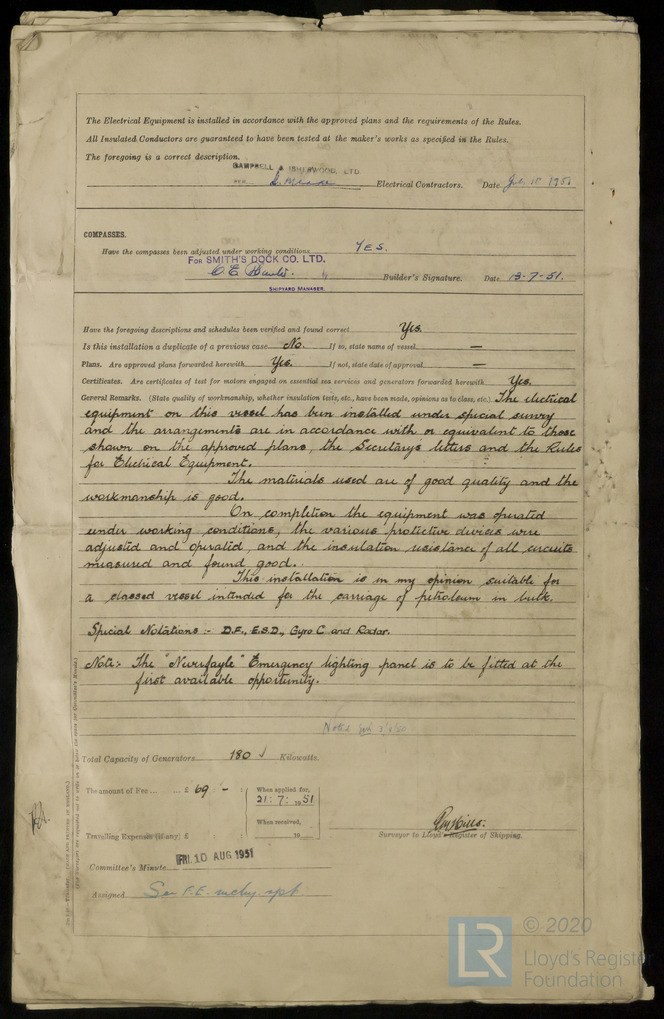 The Electrical Equipment is installed in accordance with the approved plans and the requirements of the Rules.
All Insulated Conductors are guaranteed to have been tested at the maker's works as specified in the Rules.
The foregoing is a correct description.
CAMPBELL & ISHERWOOD, LTD
Electrical Contractors. Date 1951
COMPASSES.
Have the compasses been adjusted under working conditions YES.
FOR SMITH'S DOCK CO. LTD.
Builder's Signature. Date 13-7-51.
SHIPYARD MANAGER.
Have the foregoing descriptions and schedules been verified and found correct Yes.
Is this installation a duplicate of a previous case No. If so, state name of vessel —
Plans. Are approved plans forwarded herewith Yes. If not, state date of approval —
Certificates. Are certificates of test for motors engaged on essential sea services and generators forwarded herewith Yes.
General Remarks. (State quality of workmanship, whether insulation tests, etc., have been made, opinions as to class, etc.) The electrical
equipment on this vessel has been installed under special survey
and the arrangements are in accordance with or equivalent to those
shown on the approved plans, the Secretary's letters and the Rules
for Electrical Equipment.
The materials used are of good quality and the
workmanship is good.
On completion the equipment was operated
under working conditions, the various protective devices were
adjusted and operated, and the insulation resistance of all circuits
measured and found good.
This installation is in my opinion suitable for
a classed vessel intended for the carriage of petroleum in bulk.
Special Notations :- D.F., E.S.D., Gyro C and Radar.
Note:- The "Neverfayle" Emergency lighting panel is to be fitted at the
first available opportunity.
Noted
Total Capacity of Generators 180 Kilowatts.
The amount of Fee ... £ 69 : - : When applied for,
21 : 7 : 19 51
When received,
Travelling Expenses (if any) £ : : 19
Surveyor to Lloyd's Register of Shipping.
Committee's Minute FRI. 10 AUG 1951
Assigned See F.E. mchy rpt
© 2020
LR
Lloyd's Register
Foundation